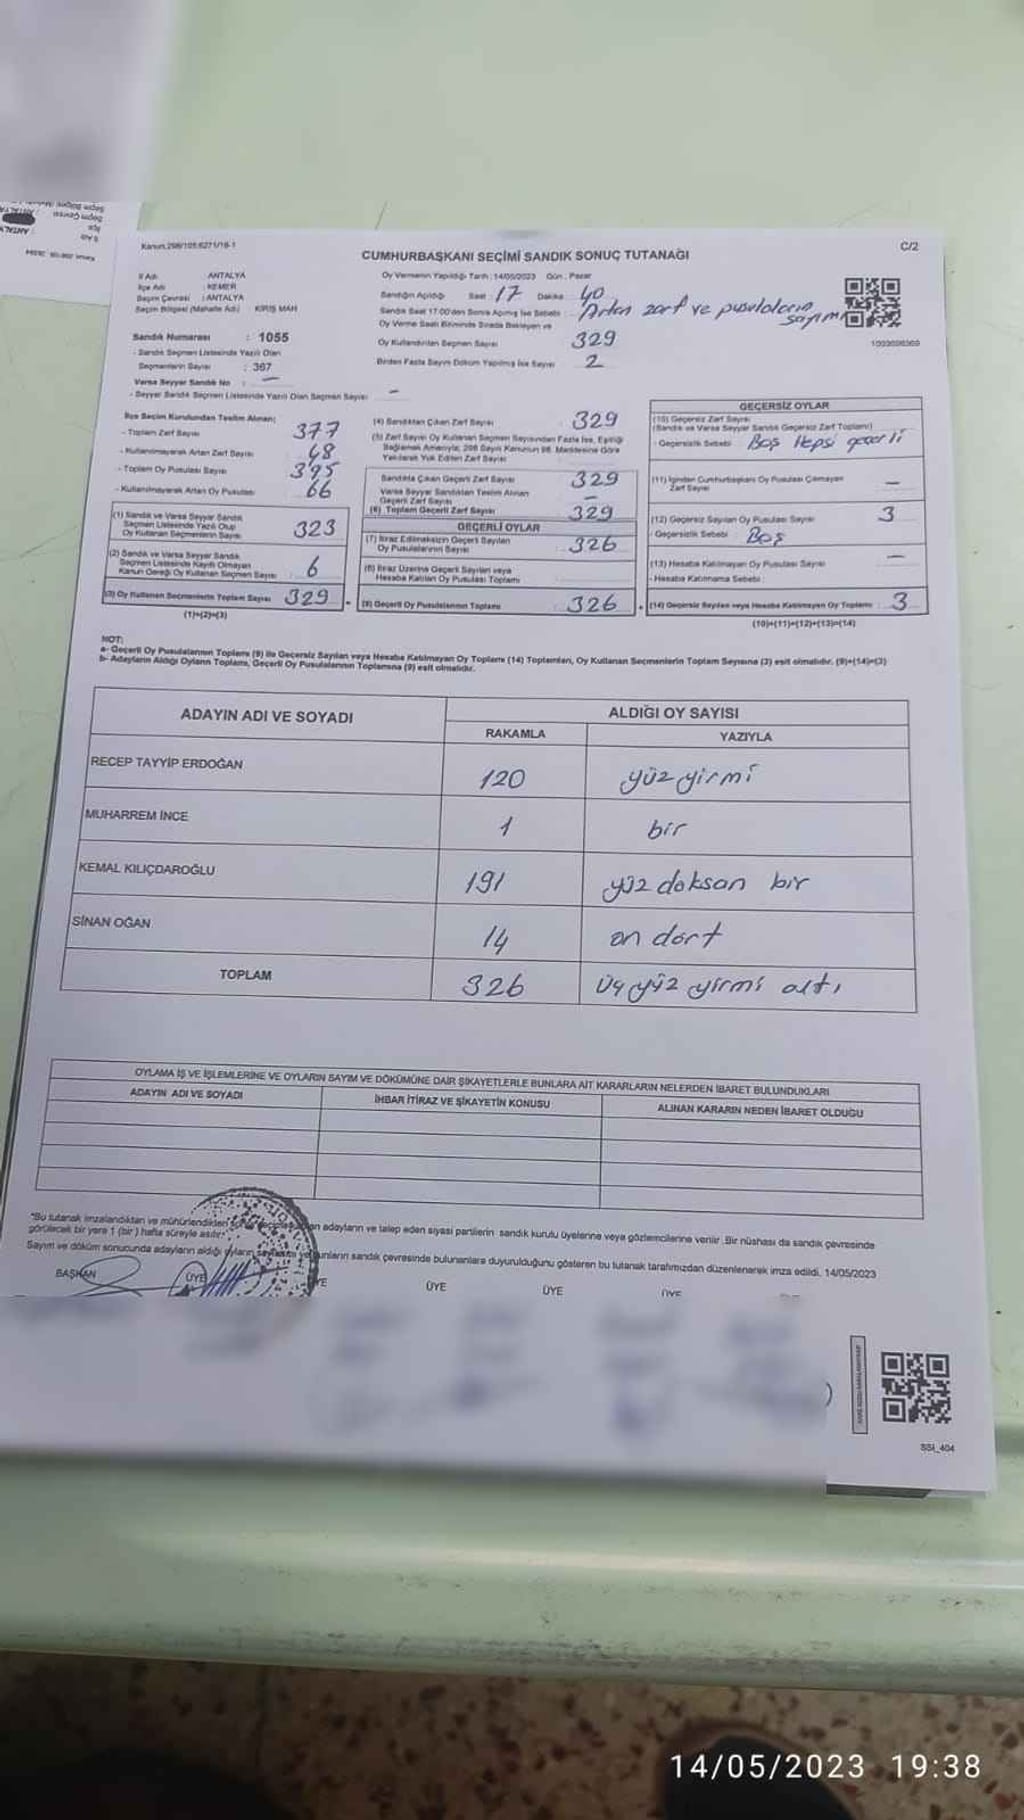 Kanun:298/105;6271/18-1
C/2
CUMHURBAŞKANI SEÇİMİ SANDIK SONUÇ TUTANAĞI
İl Adı : ANTALYA
İlçe Adı : KEMER
Seçim Çevresi : ANTALYA
Seçim Bölgesi (Mahalle Adı) : KİRİŞ MAH
Sandık Numarası : 1055
- Sandık Seçmen Listesinde Yazılı Olan
Seçmenlerin Sayısı : 367
Varsa Seyyar Sandık No : –
- Seyyar Sandık Seçmen Listesinde Yazılı Olan Seçmen Sayısı : –
Oy Vermenin Yapıldığı Tarih : 14/05/2023 Gün : Pazar
Sandığın Açıldığı Saat : 17 Dakika : 40
Sandık Saat 17:00'den Sonra Açılmış İse Sebebi : Artan zarf ve pusulaların sayımı
Oy Verme Saati Bitiminde Sırada Bekleyen ve
Oy Kullandırılan Seçmen Sayısı 329
Birden Fazla Sayım Döküm Yapılmış İse Sayısı 2
1003098369
İlçe Seçim Kurulundan Teslim Alınan;
- Toplam Zarf Sayısı 377
- Kullanılmayarak Artan Zarf Sayısı 48
- Toplam Oy Pusulası Sayısı 395
- Kullanılmayarak Artan Oy Pusulası 66
(1) Sandık ve Varsa Seyyar Sandık
Seçmen Listesinde Yazılı Olup
Oy Kullanan Seçmenlerin Sayısı 323
(2) Sandık ve Varsa Seyyar Sandık
Seçmen Listesinde Kayıtlı Olmayan
Kanun Gereği Oy Kullanan Seçmen Sayısı 6
(3) Oy Kullanan Seçmenlerin Toplam Sayısı 329
(1)+(2)=(3)
(4) Sandıktan Çıkan Zarf Sayısı 329
(5) Zarf Sayısı Oy Kullanan Seçmen Sayısından Fazla İse, Eşitliği
Sağlamak Amacıyla; 298 Sayılı Kanunun 98. Maddesine Göre
Yakılarak Yok Edilen Zarf Sayısı
Sandıkta Çıkan Geçerli Zarf Sayısı 329
Varsa Seyyar Sandıktan Teslim Alınan
Geçerli Zarf Sayısı –
(6) Toplam Geçerli Zarf Sayısı 329
GEÇERLİ OYLAR
(7) İtiraz Edilmeksizin Geçerli Sayılan
Oy Pusulalarının Sayısı 326
(8) İtiraz Üzerine Geçerli Sayılan veya
Hesaba Katılan Oy Pusulası Toplamı
(9) Geçerli Oy Pusulalarının Toplamı 326
GEÇERSİZ OYLAR
(10) Geçersiz Zarf Sayısı
(Sandık ve Varsa Seyyar Sandık Geçersiz Zarf Toplamı)
- Geçersizlik Sebebi Boş Hepsi geçerli
(11) İçinden Cumhurbaşkanı Oy Pusulası Çıkmayan
Zarf Sayısı –
(12) Geçersiz Sayılan Oy Pusulası Sayısı 3
- Geçersizlik Sebebi : Boş
(13) Hesaba Katılmayan Oy Pusulası Sayısı –
- Hesaba Katılmama Sebebi :
(14) Geçersiz Sayılan veya Hesaba Katılmayan Oy Toplamı : 3
(10)+(11)+(12)+(13)=(14)
NOT:
a- Geçerli Oy Pusulalarının Toplamı (9) ile Geçersiz Sayılan veya Hesaba Katılmayan Oy Toplamı (14) Toplamları, Oy Kullanan Seçmenlerin Toplam Sayısına (3) eşit olmalıdır. (9)+(14)=(3)
b- Adayların Aldığı Oyların Toplamı, Geçerli Oy Pusulalarının Toplamına (9) eşit olmalıdır.
ADAYIN ADI VE SOYADI
ALDIĞI OY SAYISI
RAKAMLA YAZIYLA
RECEP TAYYİP ERDOĞAN 120 yüz yirmi
MUHARREM İNCE 1 bir
KEMAL KILIÇDAROĞLU 191 yüz doksan bir
SİNAN OĞAN 14 on dört
TOPLAM 326 üç yüz yirmi altı
OYLAMA İŞ VE İŞLEMLERİNE VE OYLARIN SAYIM VE DÖKÜMÜNE DAİR ŞİKAYETLERLE BUNLARA AİT KARARLARIN NELERDEN İBARET BULUNDUKLARI
ADAYIN ADI VE SOYADI İHBAR İTİRAZ VE ŞİKAYETİN KONUSU ALINAN KARARIN NEDEN İBARET OLDUĞU
"Bu tutanak imzalandıktan ve mühürlendikten adayların ve talep eden siyasi partilerin sandık kurulu üyelerine veya gözlemcilerine verilir. Bir nüshası da sandık çevresinde
görülecek bir yere 1 (bir) hafta süreyle asılır."
Sayım ve döküm sonucunda adayların aldığı oyların sandık çevresinde bulunanlara duyurulduğunu gösteren bu tutanak tarafımızdan düzenlenerek imza edildi. 14/05/2023
BAŞKAN ÜYE ÜYE ÜYE ÜYE ÜYE
SSI_404
14/05/2023 19:38